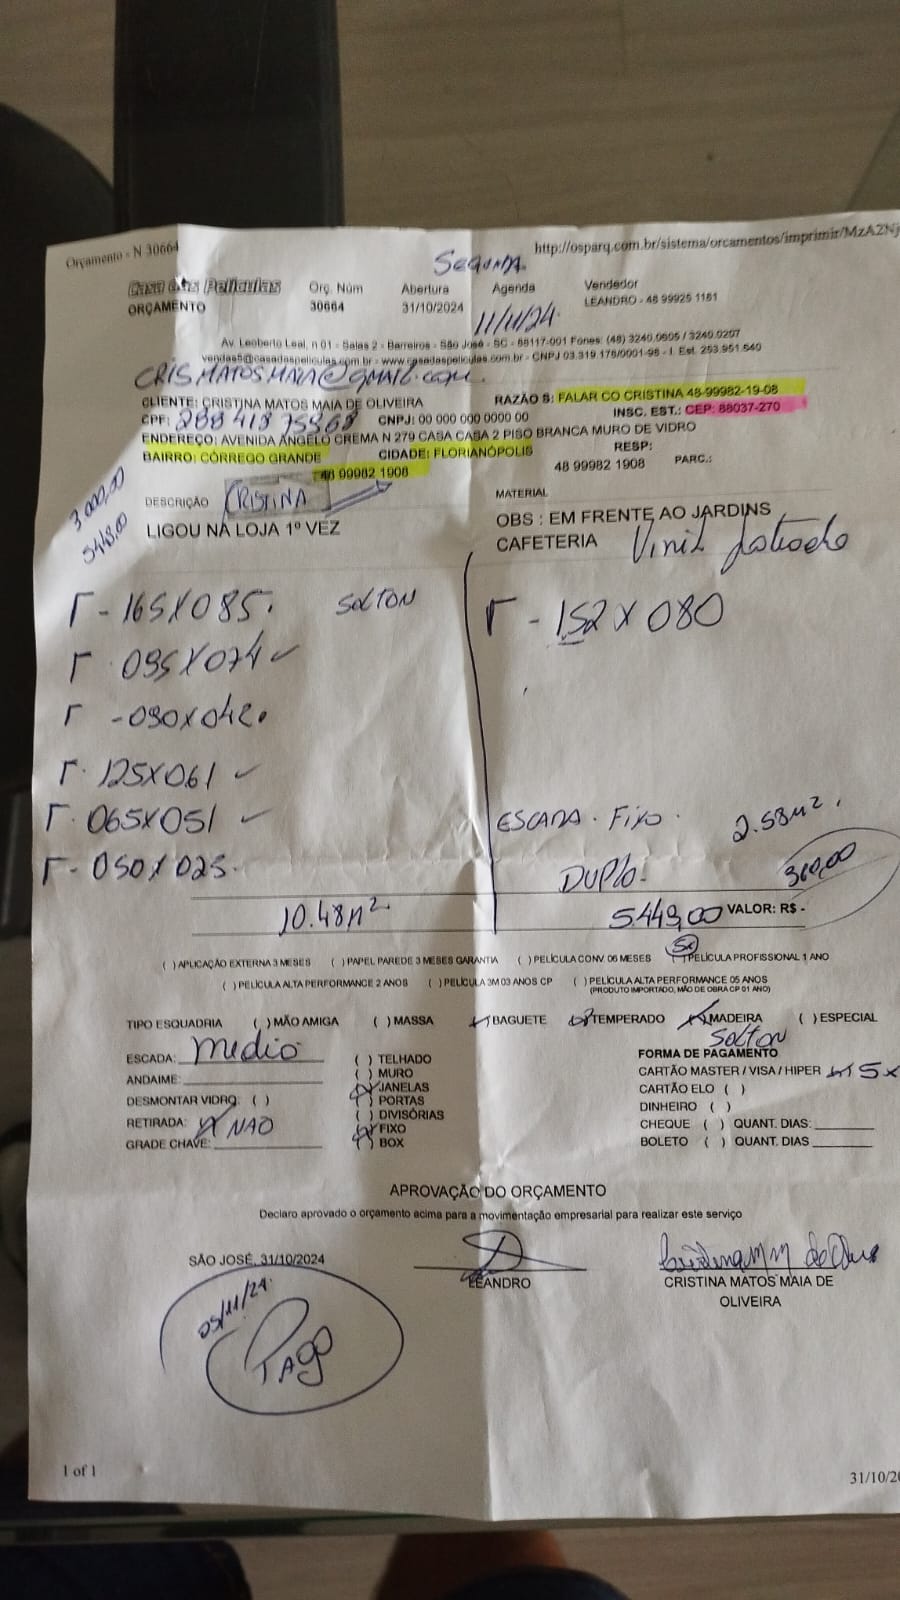 Orçamento - N 30664
http://osparq.com.br/sistema/orcamentos/imprimir/MzA2Nj
SEGUNDA
Casa das Películas Orç. Núm Abertura Agenda Vendedor
ORÇAMENTO 30664 31/10/2024 11/11/24 LEANDRO - 48 99925 1161
Av. Leoberto Leal, n 01 - Salas 2 - Barreiros - São José - SC - 88117-001 Fones: (48) 3240.0605 / 3240.0207
vendas5@casadaspeliculas.com.br - www.casadaspeliculas.com.br - CNPJ 03.319.178/0001-98 - I. Est. 253.951.540
CRISMATOSMAIA@GMAIL.com
CLIENTE: CRISTINA MATOS MAIA DE OLIVEIRA RAZÃO S: FALAR CO CRISTINA 48-99982-19-08
CPF: 288 418 75368 CNPJ: 00 000 000 0000 00 INSC. EST.: CEP: 88037-270
ENDEREÇO: AVENIDA ANGELO CREMA N 279 CASA CASA 2 PISO BRANCA MURO DE VIDRO
BAIRRO: CÓRREGO GRANDE CIDADE: FLORIANÓPOLIS RESP:
48 99982 1908 48 99982 1908 PARC.:
3.000,00
5448,00
DESCRIÇÃO CRISTINA MATERIAL
LIGOU NA LOJA 1º VEZ OBS : EM FRENTE AO JARDINS
CAFETERIA Vinil Jateado
Γ - 165X085. SOLTON Γ - 152 X 080
Γ 095X074 ✓
Γ - 090X042.
Γ. 125X061 ✓
Γ. 065X051 ✓ ESCADA . Fixo . 2.58M².
Γ - 050X025. DUPLO. 360,00
10.48M². 5.449,00 VALOR: R$ -
5x
( ) APLICAÇÃO EXTERNA 3 MESES ( ) PAPEL PAREDE 3 MESES GARANTIA ( ) PELÍCULA CONV. 06 MESES ( ) PELÍCULA PROFISSIONAL 1 ANO
( ) PELÍCULA ALTA PERFORMANCE 2 ANOS ( ) PELÍCULA 3M 03 ANOS CP ( ) PELÍCULA ALTA PERFORMANCE 05 ANOS
(PRODUTO IMPORTADO, MÃO DE OBRA CP 01 ANO)
TIPO ESQUADRIA ( ) MÃO AMIGA ( ) MASSA (✓) BAGUETE (X) TEMPERADO (X) MADEIRA ( ) ESPECIAL
SOLTON
ESCADA: medio ( ) TELHADO FORMA DE PAGAMENTO
ANDAIME: ( ) MURO CARTÃO MASTER / VISA / HIPER (X) 5x
DESMONTAR VIDRO: ( ) (X) JANELAS CARTÃO ELO ( )
( ) PORTAS DINHEIRO ( )
RETIRADA: (X) NAO ( ) DIVISÓRIAS CHEQUE ( ) QUANT. DIAS:
GRADE CHAVE: (X) FIXO BOLETO ( ) QUANT. DIAS
(X) BOX
APROVAÇÃO DO ORÇAMENTO
Declaro aprovado o orçamento acima para a movimentação empresarial para realizar este serviço
SÃO JOSÉ, 31/10/2024
LEANDRO CRISTINA MATOS MAIA DE
OLIVEIRA
05/11/24
PAgo
1 of 1 31/10/20